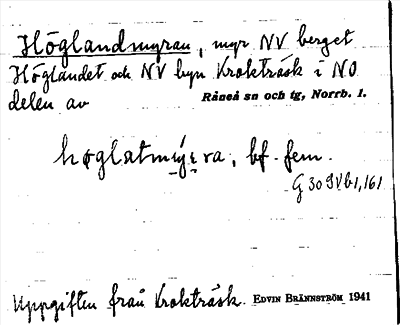 Höglandmyran, myr NV berget
Höglandet och NV byn Krokträsk i NO
delen av Råneå sn och tg, Norrb. l.
høglatmý̱ra, bf. fem.
G 30 9Vb1,161
Uppgiften från Krokträsk. EDVIN BRÄNNSTRÖM 1941